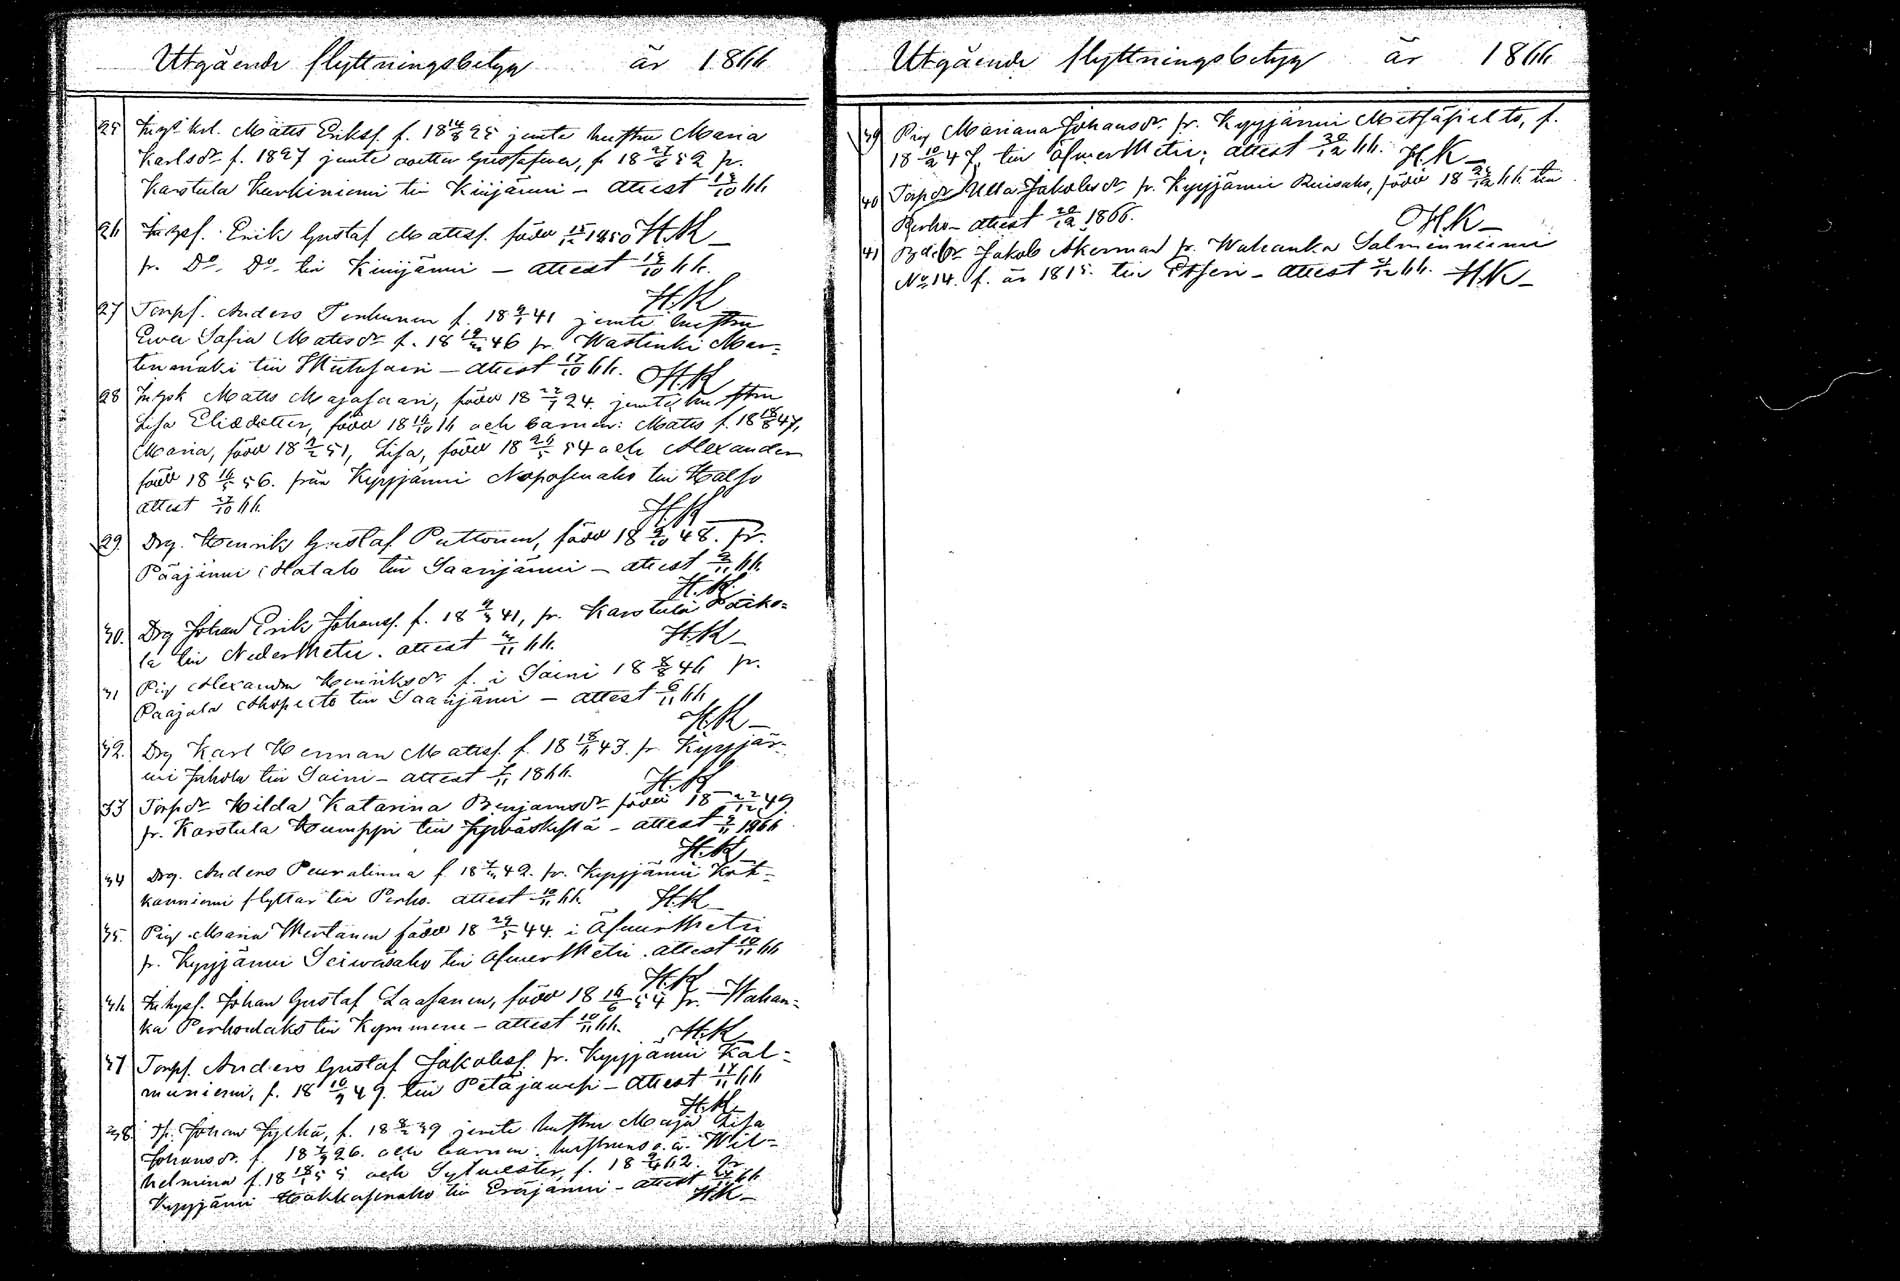 Utgående flyttningsbetyg år 1866
25 Inhys karl. Matts Eriksf. f. 18 14/8 25 jemte hustru Maria
Karlsdr f. 1827 jemte dotter Gustafva, f. 18 27/6 52 fr.
Karstula Karkiniemi till Kivijärvi – attest 13/10 66
26 Inhysf. Erik Gustaf Matsf. född 15/12 1850 H.K
fr. Do Do till Kivijärvi – attest 13/10 66.
H.K
27 Torpf. Anders Penkunen f. 18 9/1 41 jemte hustru
Ewa Sofia Matsdr f. 18 19/3 46 fr. Wastinki Mar-
tinmäki till Multia – attest 17/10 66. H.K
28 Matts Majasaari, född 18 22/7 24. jemte hustru
Lisa Eliædotter, född 18 16/10 16 och barnen: Matts f. 18 18/8 47,
Maria, född 18 2/2 51, Lisa, född 18 26/5 54 och Alexander
född 18 16/5 56. från Kyyjärvi Noposenaho till Halso
attest 27/10 66
H.K
29 Drg. Henrik Gustaf Puttonen, född 18 9/10 48. fr.
Pääjärvi Hatalo till Saarijärvi – attest 2/11 66.
H.K.
30. Drg Johan Erik Johansf. f. 18 9/3 41, fr. Karstula Paiko-
la till NederWetil. attest 3/11 66. H.K
31 Pig Alexandra Henriksdr f. i Soini 18 8/8 46 fr.
Paajala Ahopelto till Saarijärvi – attest 6/11 66
H.K
32. Drg Karl Herman Matsf. f. 18 18/11 43. fr Kyyjär-
vi Jokola till Soini – attest 7/11 1866.
H.K
33 Torpdr Hilda Katarina Benjamsdr född 18 22/12 49.
fr. Karstula Humppi till Jyväskylä – attest 9/11 1866
H.K
34 Drg. Anders Peuralinna f 18 7/3 42. fr. Kyyjärvi Kok-
kaniemi flyttar till Perho. attest 10/11 66. H.K
35. Pig Maria född 18 29/5 44. i ÖfverWetil
fr. Kyyjärvi till ÖfverWetil. attest 10/11 66
H.K
36 Inhysf. Johan Gustaf Laasanen, född 18 16/6 54 fr. Wahan-
ka till Kymmene – attest 10/11 66.
H.K
37 Torpf. Anders Gustaf Jakobsf. fr. Kyyjärvi Kal-
muniemi, f. 18 10/9 49. till Petäjävesi – attest 17/11 66
H.K
38. Johan Jylhä, f. 18 8/2 39 jemte hustru Maja Lisa
Johansdr. f. 18 7/9 26. och barnen: hustruns o.ä. Wil-
helmina f. 18 18/1 55 och Sylvester, f. 18 2/4 62. fr.
Kyyjärvi Hokkasenaho till Evijärvi – attest 24/11 66
H.K
Utgående flyttningsbetyg år 1866
39 Pig Mariana Johansdr fr. Kyyjärvi Metsäpelto, f.
18 10/2 47, till ÖfverWetil; attest 20/12 66. H.K
40 Torpdr Ulla Jakobsdr fr. Kyyjärvi Ruisaho, född till
Perho – attest 20/12 1866. H.K
41 Jakob Åkerman fr. Wahanka Salmenniemi
No 14. f. år 1815. till Etseri – attest 31/12 66. H.K